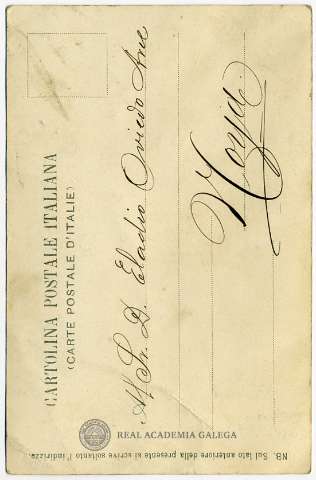 CARTOLINA POSTALE ITALIANA
(CARTE POSTALE D'ITALIE)
Al Sr. D. Eladio Oviedo Arce
Noya.
NB. Sul lato anteriore della presente si scrive soltanto l'indirizzo.
REAL ACADEMIA GALEGA